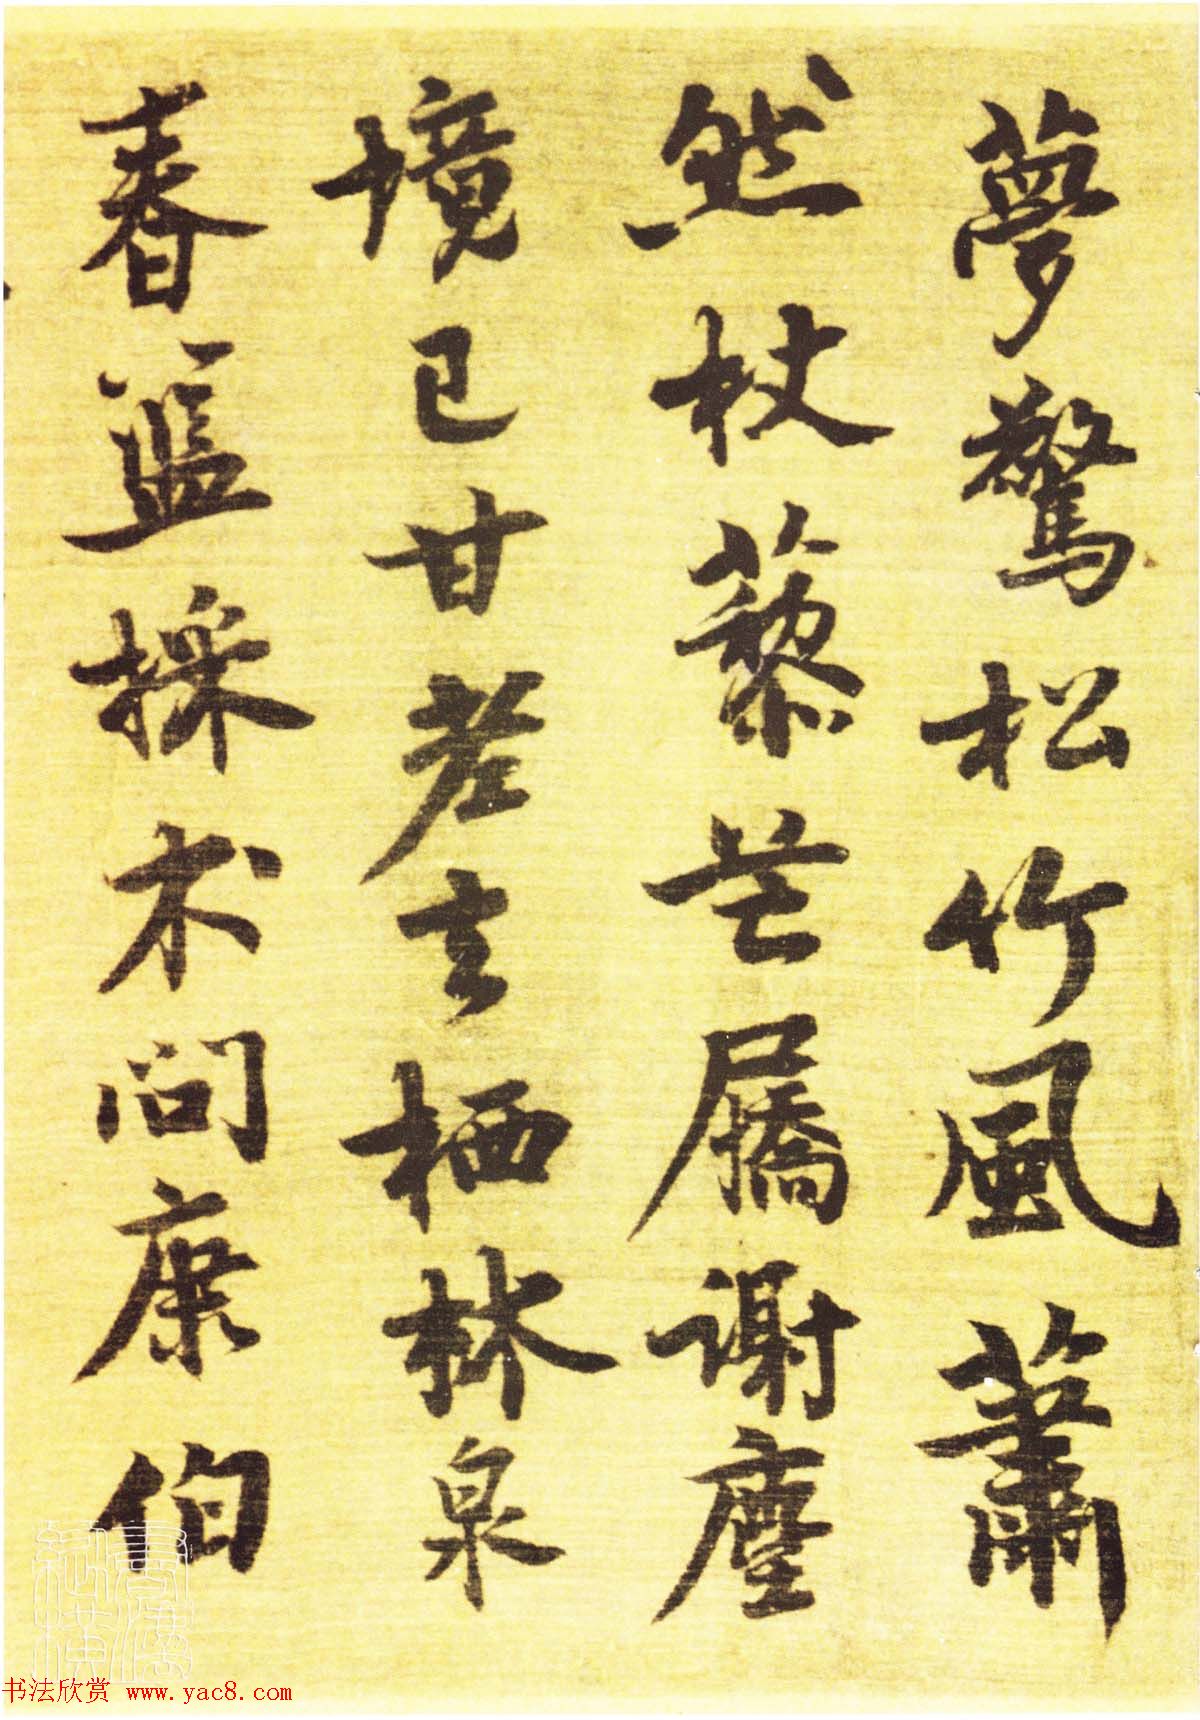 夢驚松竹風蕭
然杖藜芒屩謝塵
境已甘老去栖林泉
春籃採朮問康伯
书法欣赏 www.yac8.com